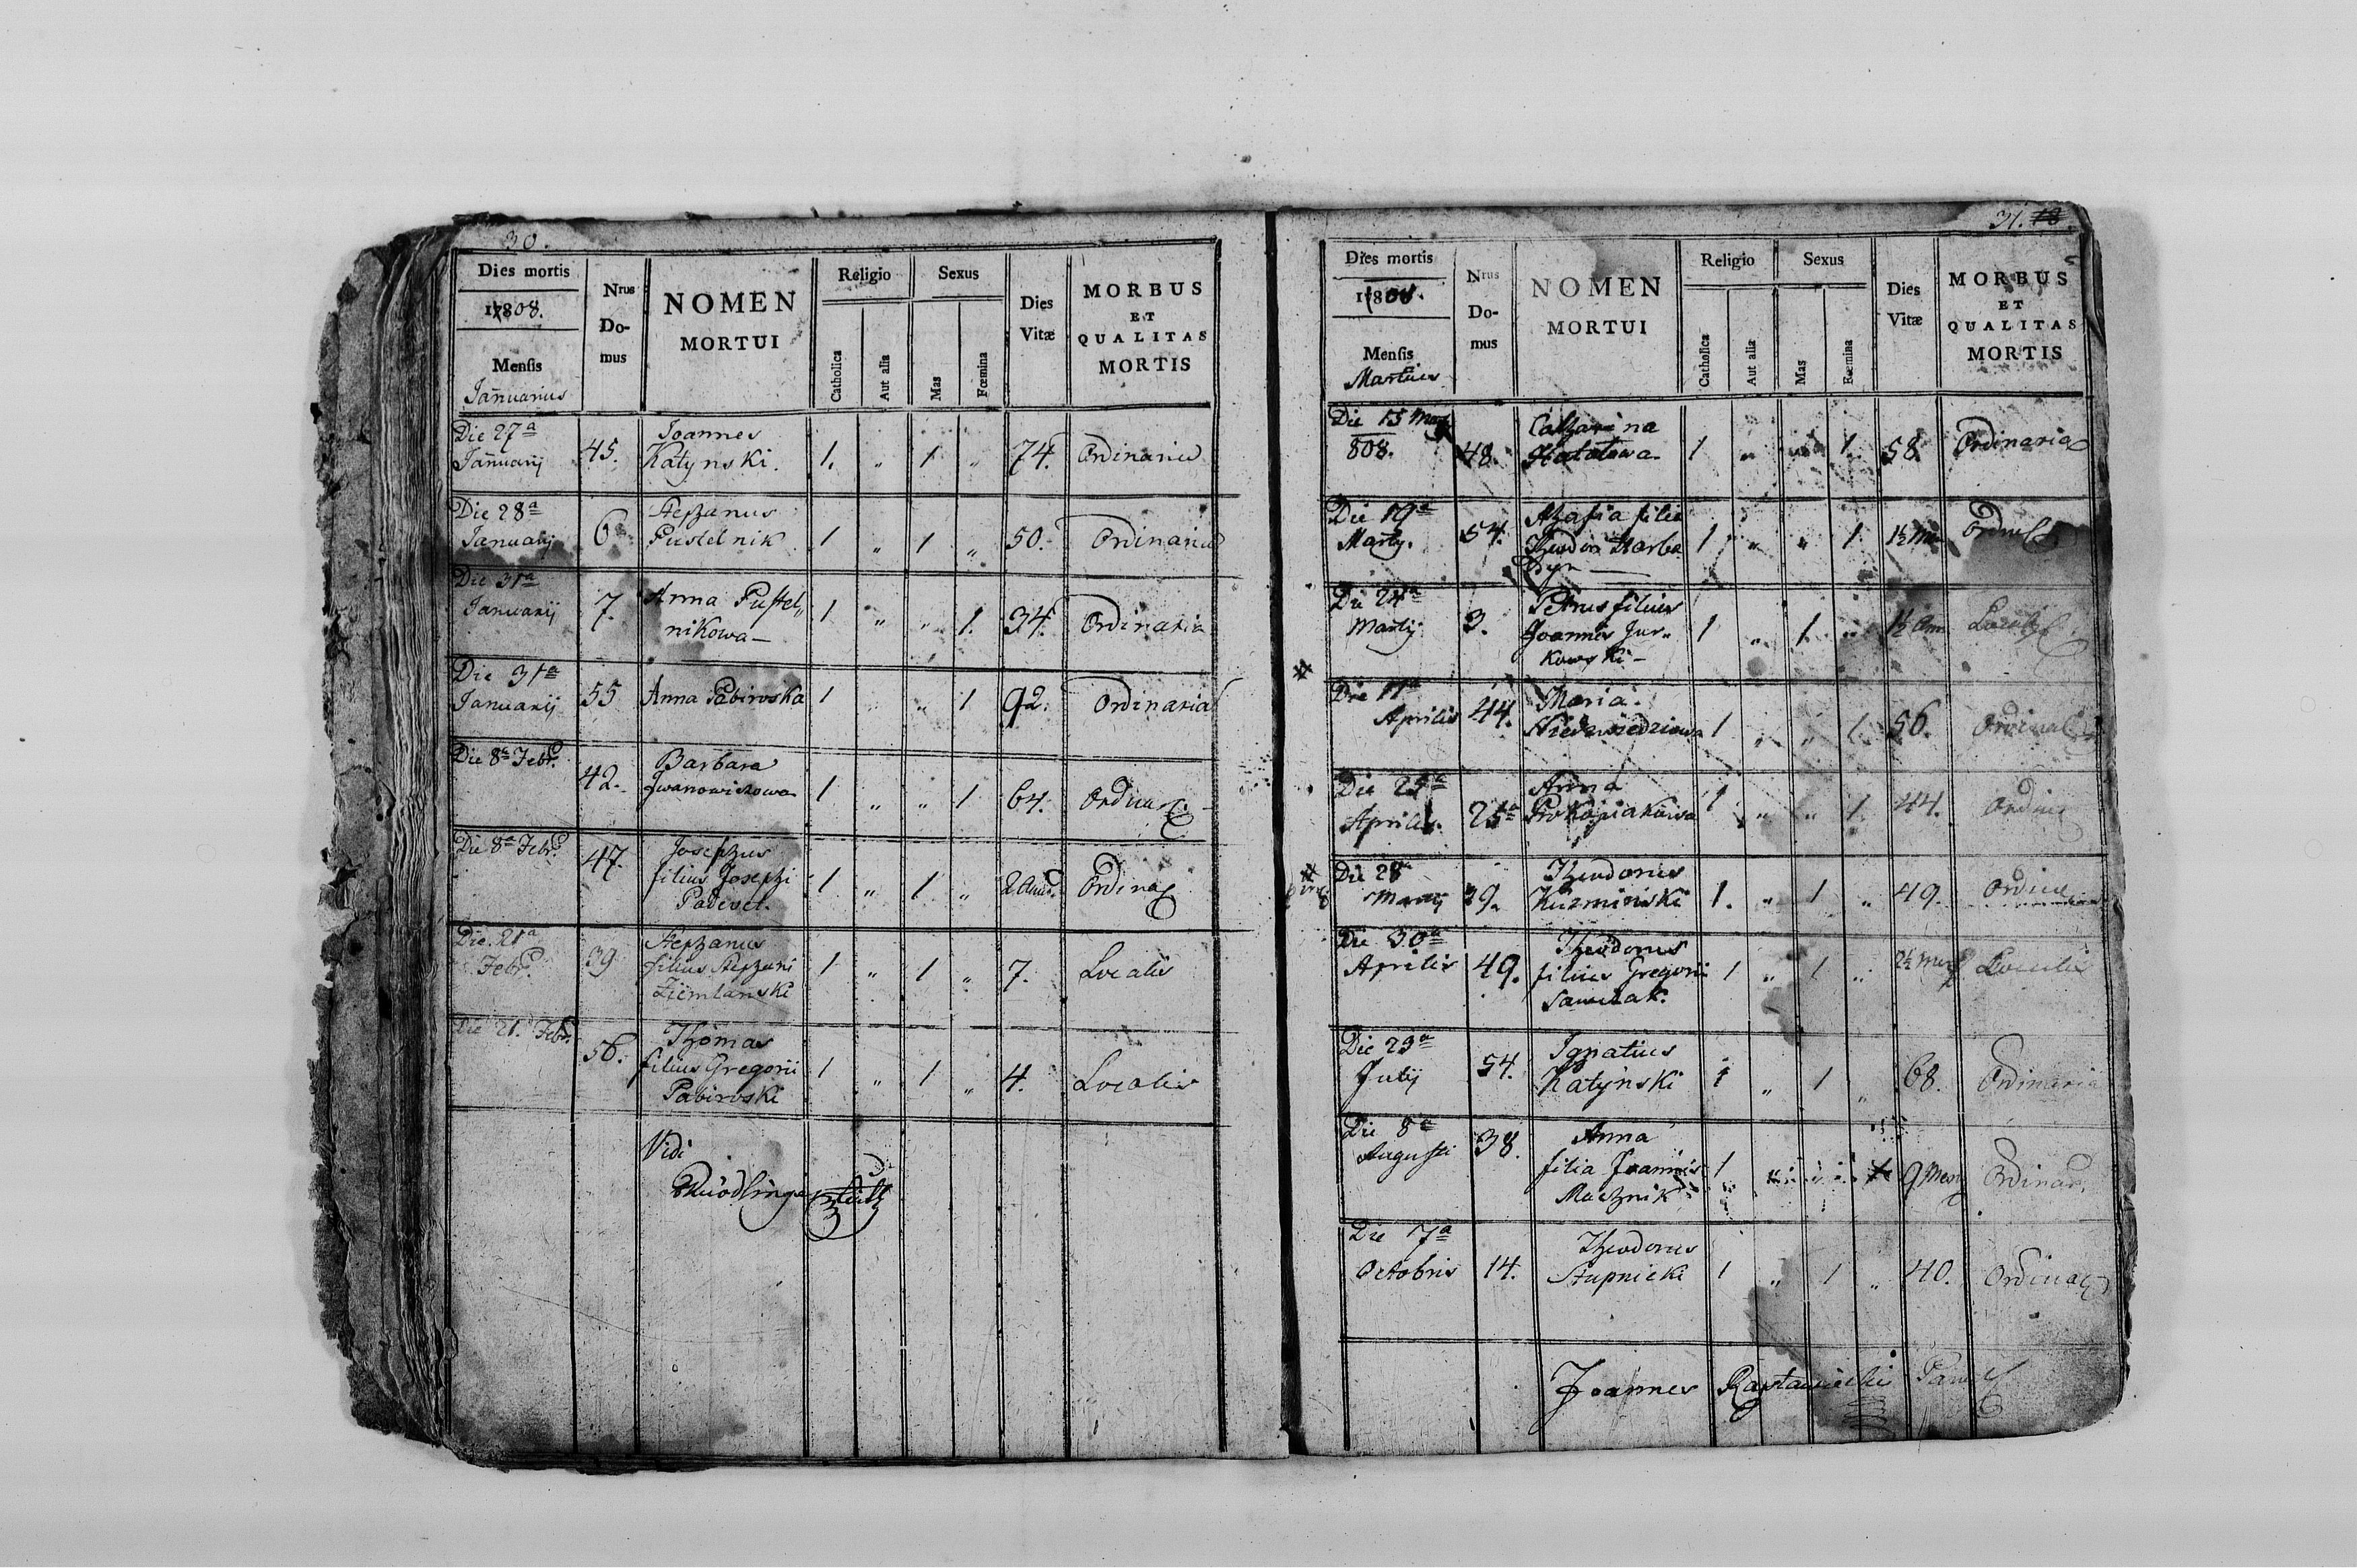 30.
Dies mortis
1808.
Mensis
Januarius
Nrus
Do-
mus
NOMEN
MORTUI
Religio
Catholica
Aut alia
Sexus
Mas
Fœmina
Dies
Vitæ
MORBUS
ET
QUALITAS
MORTIS
Die 27a
Januarij
45.
Joannes
Katynski.
1. " 1 "
74.
Ordinaria
Die 28a
Januarij
6
Stephanus
Pustelnik
1 " 1 "
50.
Ordinaria
Die 31a
Januarij
7.
Anna Pustel„
nikowa—
1 " " 1.
34.
Ordinaria
Die 31a
Januarij
55
Anna Pabiroska
1 " " 1
92.
Ordinaria
Die 8a Febr.
42.
Barbara
Iwanowiczowa
1 " " 1
64.
Ordinar.
Die 8a Febr.
47.
Josephus
filius Josephi
1 " 1 "
Ordina
Die 21a
Febr.
39
Stephanus
filius Stephani
Ziemlanski
1 " 1 "
7.
Localis
Die 21. Febr.
56.
Thomas
filius Gregorii
Pabiroski
1 " 1 "
4.
Localis
Vidi
31. 18
Dies mortis
1808.
Mensis
Martius
Nrus
Do-
mus
NOMEN
MORTUI
Religio
Catholica
Aut alia
Sexus
Mas
Fœmina
Dies
Vitæ
MORBUS
ET
QUALITAS
MORTIS
Die 15 Mar
808.
48.
Catharina
1 " " 1.
58.
Ordinaria
Die 19a
Martij.
54.
filia
1 " " 1
Die 24a
Martij
3.
Petrus filius
Joannis Jur„
kowski—
1 " 1 "
1½ Ann
Die 17a
Aprilis
44.
Maria
Niedzwiedziowa
1 " " 1.
56.
Die
Aprilis.
25a
Anna
Prokopiakowa
1 " " 1.
44.
Die 28a
39.
Theodorus
Kuzminski
1. " 1 "
49.
Die 30a
Aprilis
49.
Theodorus
filius Gregorii
1 " 1 "
Localis
Die 23a
Julij
54.
Ignatius
Katynski
1 " 1 "
68.
Ordinaria
Die 8a
Augusti
38.
Anna
filia Joannis
Macznik
1
9 Mens
Ordinar.
Die 7a
Octobris
14.
Theodorus
Stupnicki
1 " 1 "
40.
Ordinar
Joannes